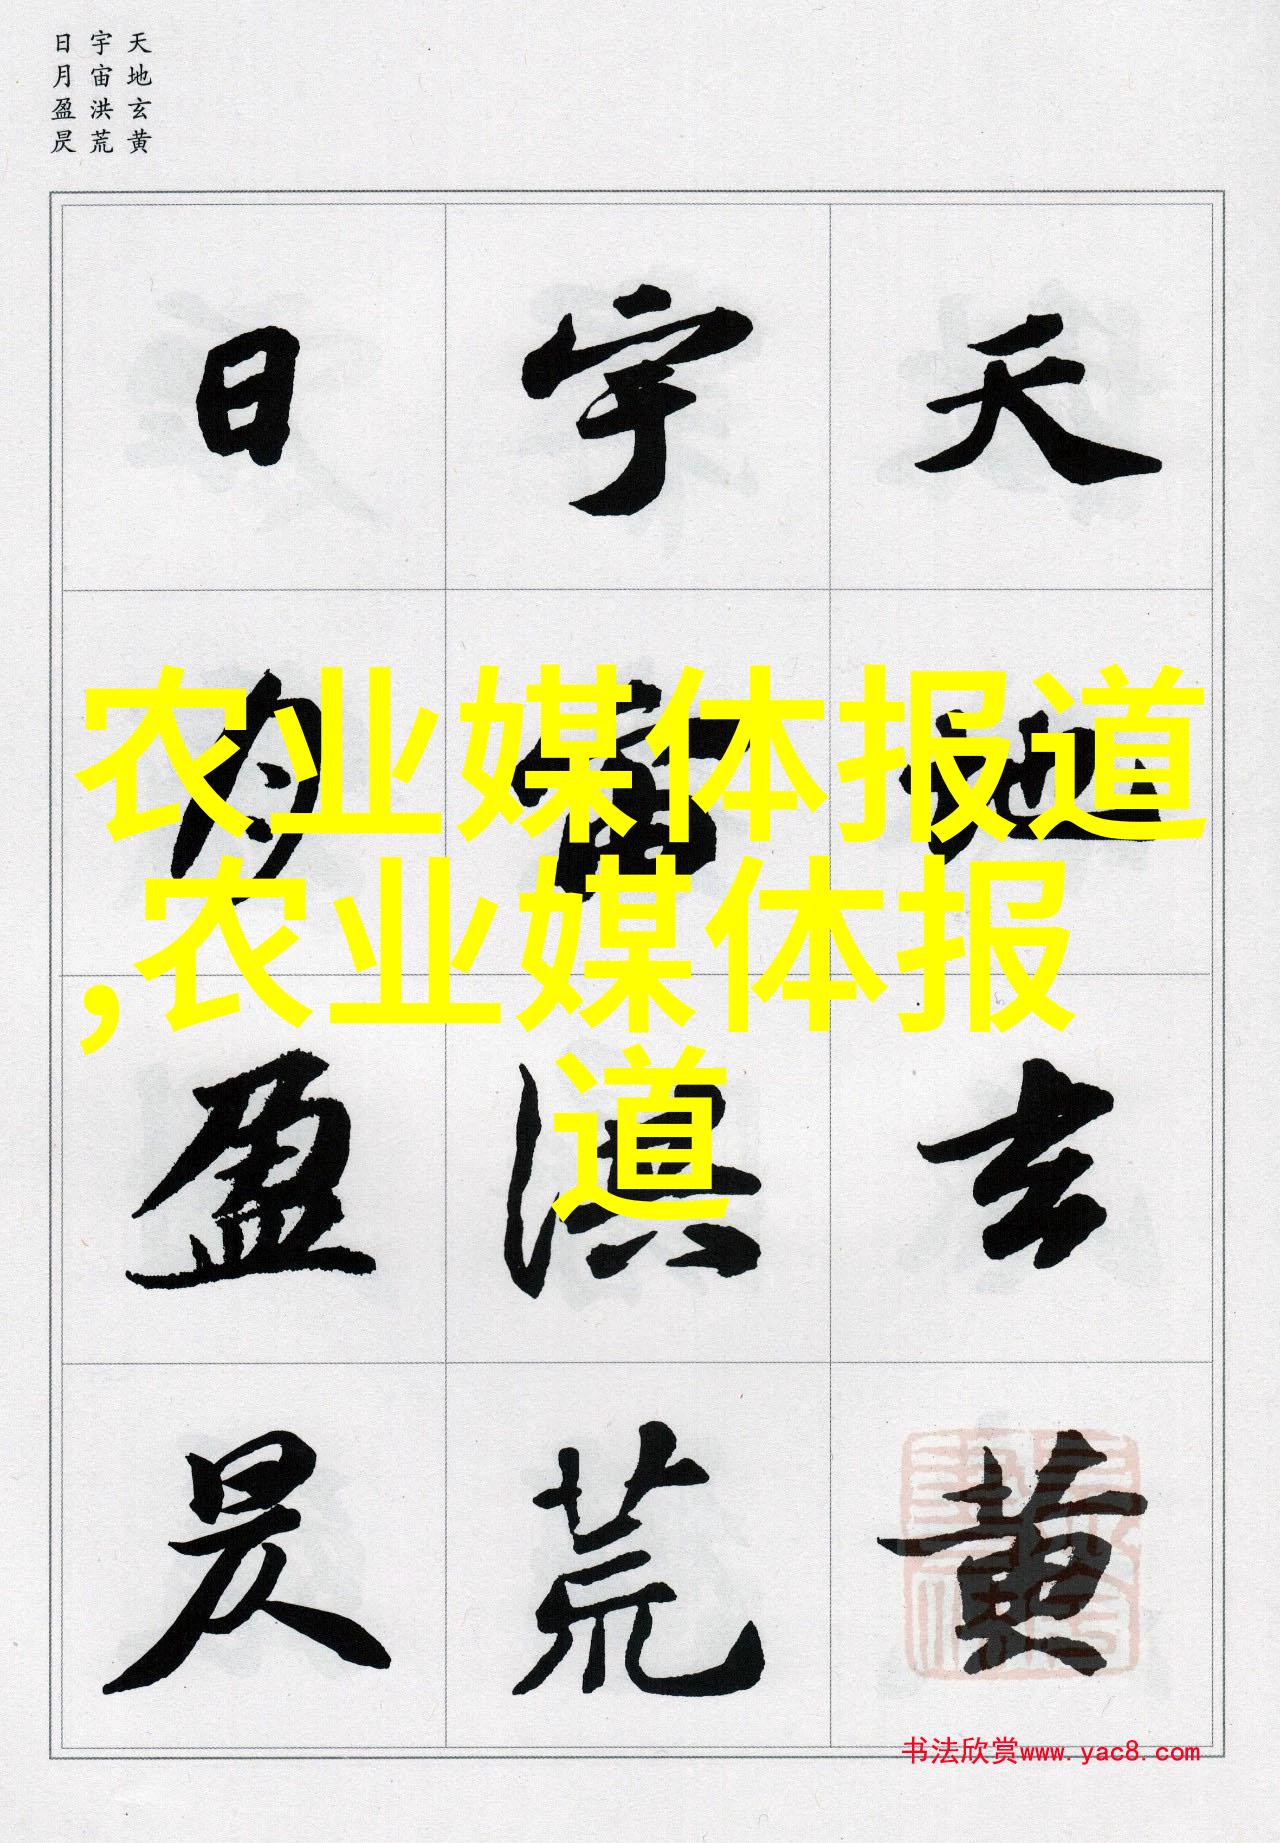 天地玄黄
宇宙洪荒
日月盈昃
天地玄黄
宇宙洪荒
日月盈昃
农业媒体报道
,农业媒体报
道
书法欣赏www.yac8.com